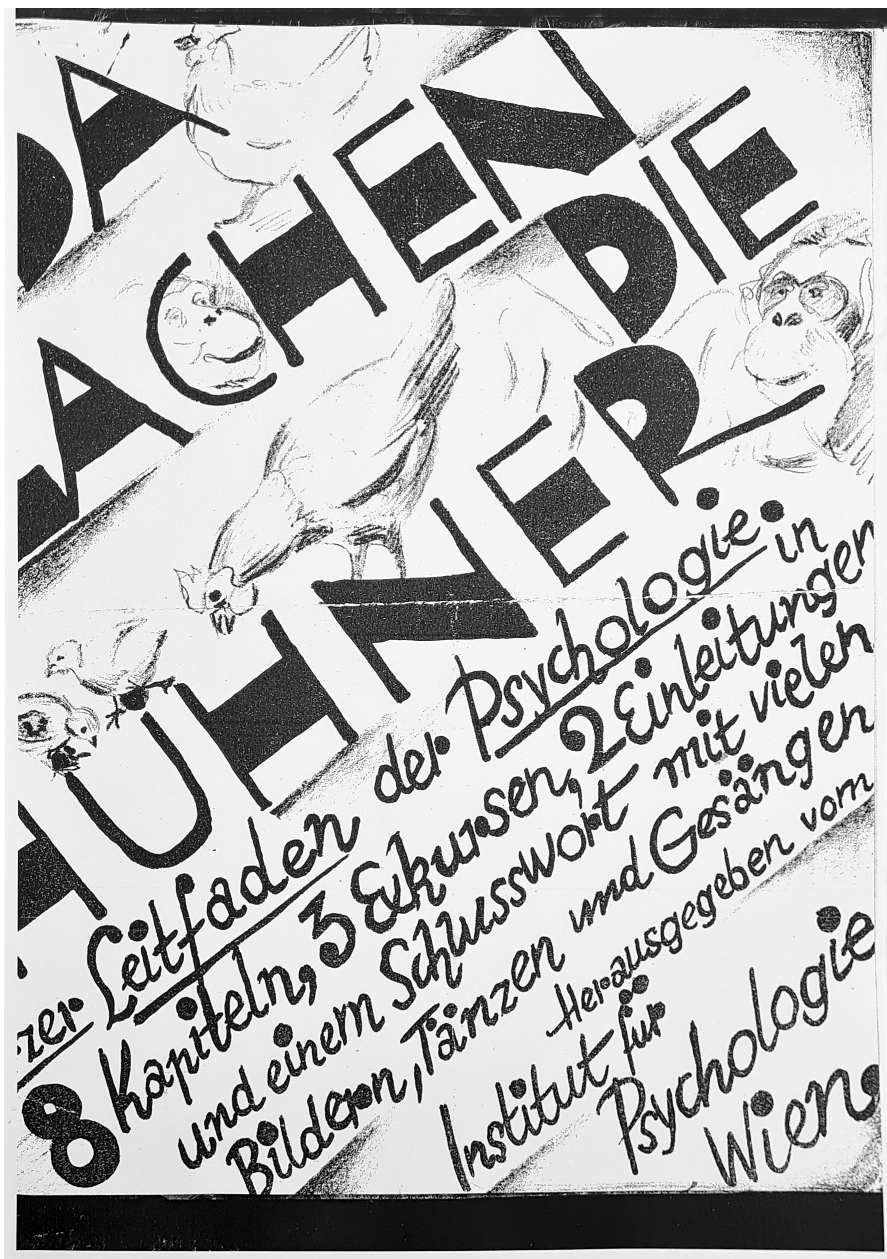 DA
LACHEN
DIE
HÜHNER
zer Leitfaden der Psychologie in
8 Kapiteln, 3 Exkursen, 2 Einleitungen
und einem Schlusswort mit vielen
Bildern, Tänzen und Gesängen
Herausgegeben vom
Institut für
Psychologie
Wien.